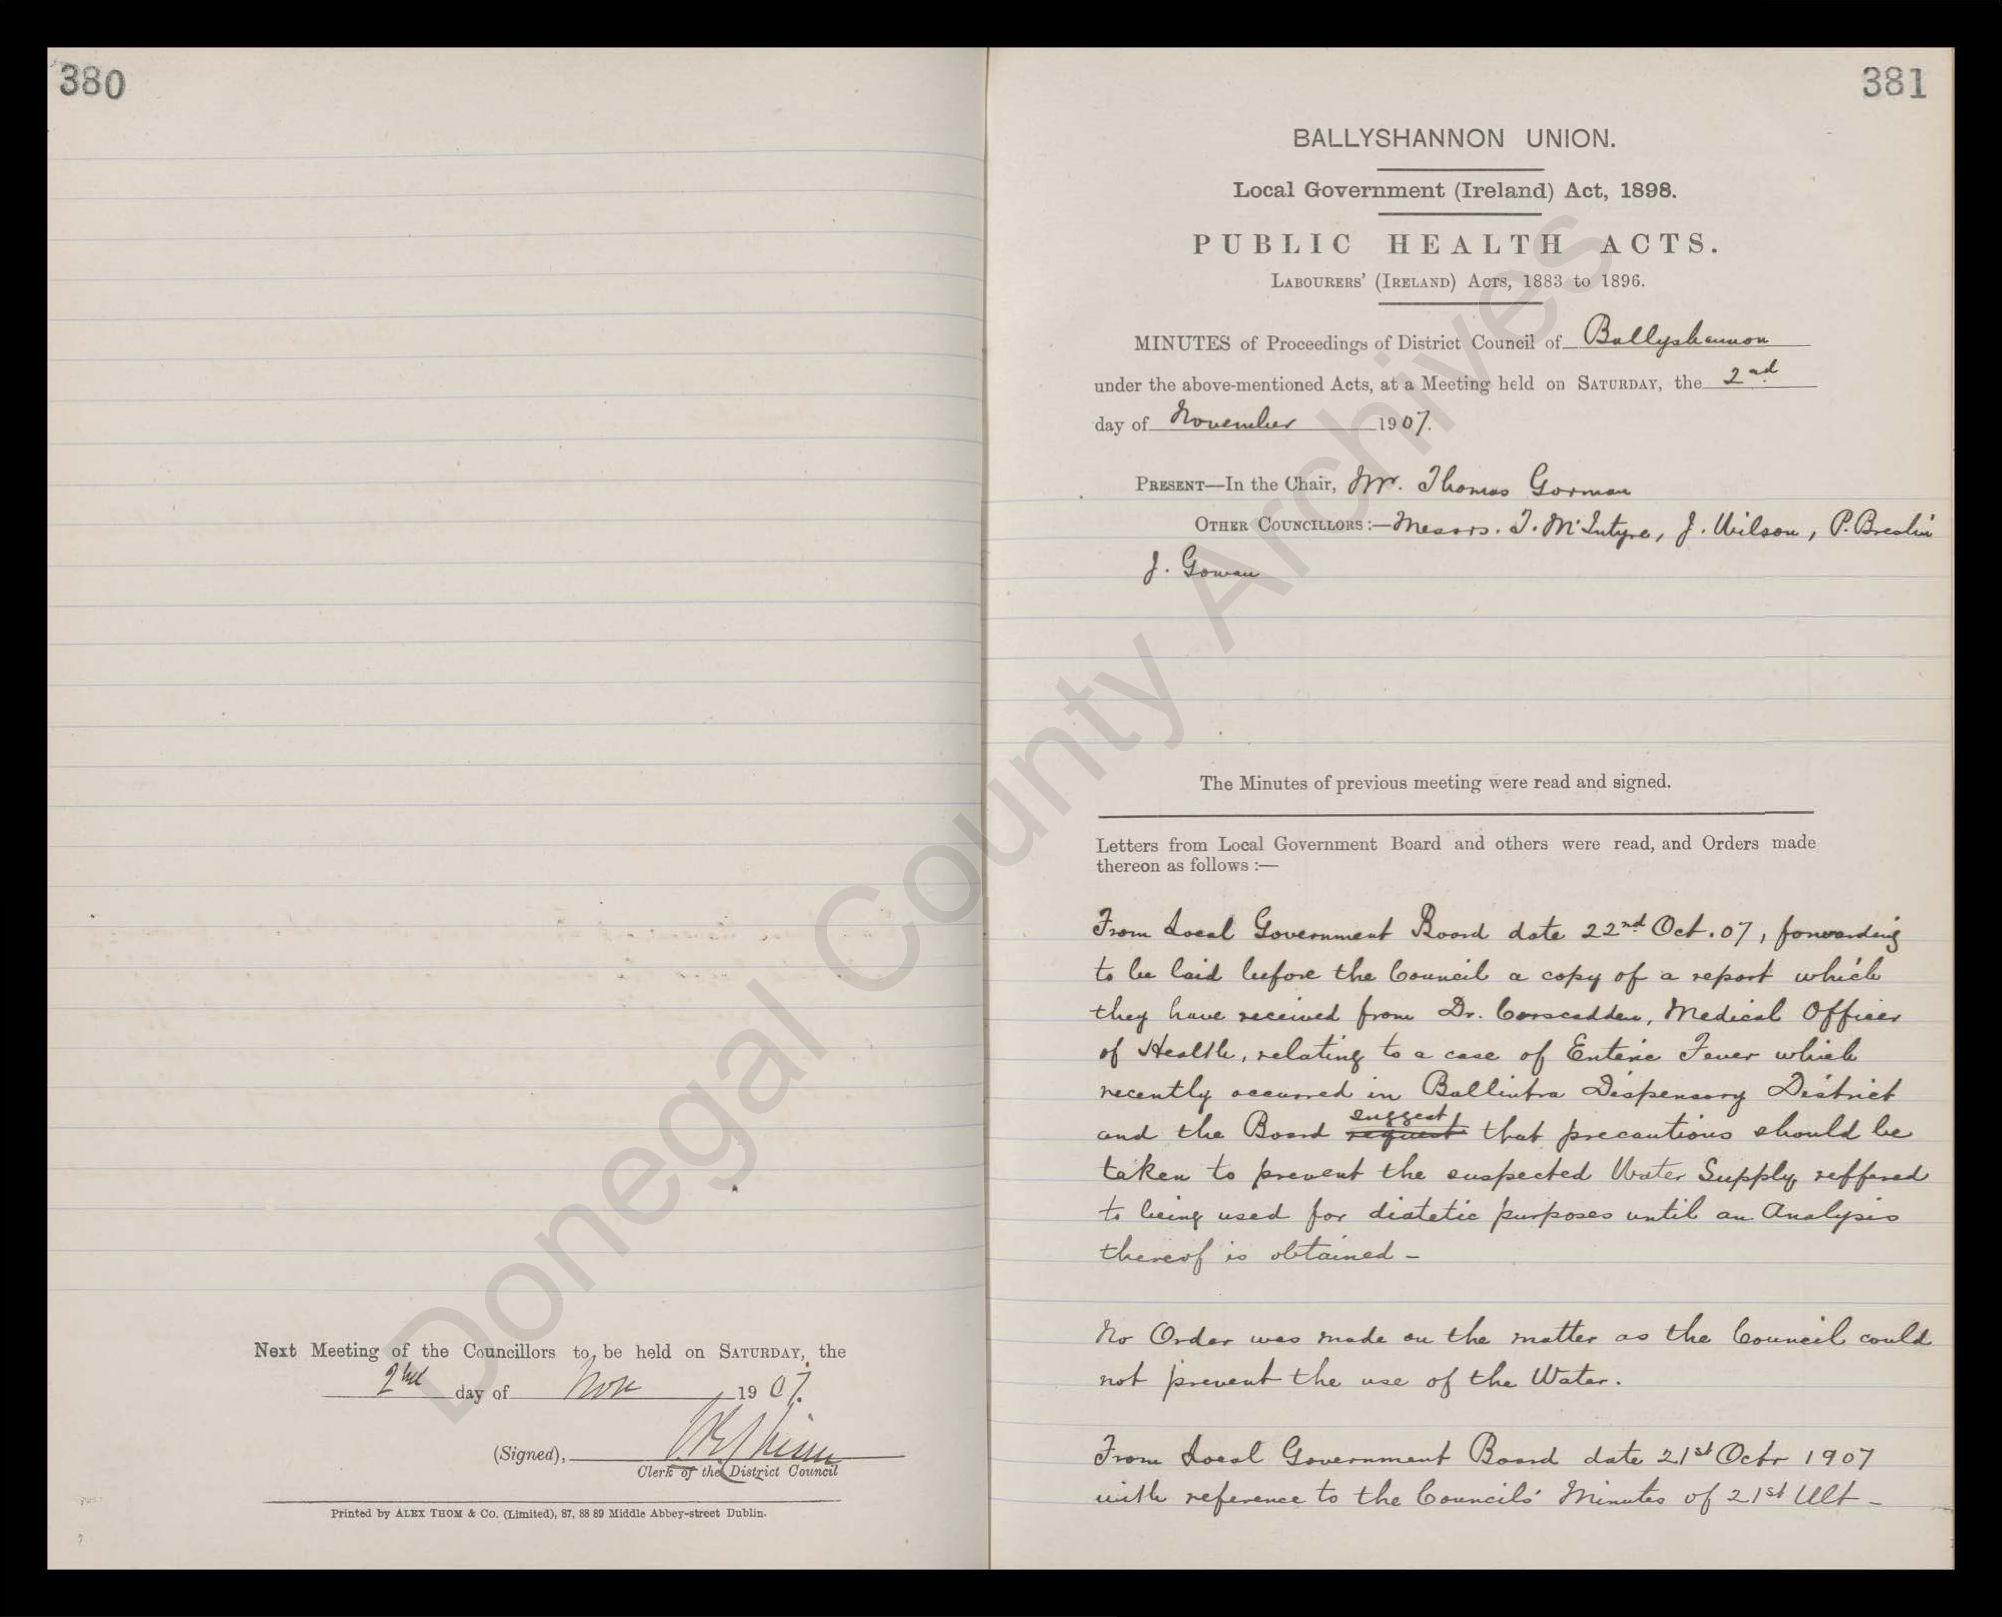 380
Next Meeting of the Councillors to be held on SATURDAY, the
2nd day of Nov 1907.
(Signed),
Clerk of the District Council
Printed by ALEX THOM & Co. (Limited), 87, 88 89 Middle Abbey-street Dublin.
381
BALLYSHANNON UNION.
Local Government (Ireland) Act, 1898.
PUBLIC HEALTH ACTS.
LABOURERS' (IRELAND) ACTS, 1883 to 1896.
MINUTES of Proceedings of District Council of Ballyshannon
under the above-mentioned Acts, at a Meeting held on SATURDAY, the 2nd
day of November 1907.
PRESENT—In the Chair, Mr. Thomas Gorman
OTHER COUNCILLORS:—Messrs. T. McIntyre, J. Wilson, P. Breslin
J. Gowan
The Minutes of previous meeting were read and signed.
Letters from Local Government Board and others were read, and Orders made
thereon as follows:—
From Local Government Board date 22nd Oct. 07, forwarding
to be laid before the Council a copy of a report which
they have received from Dr. Corscadden, Medical Officer
of Health, relating to a case of Enteric Fever which
recently occurred in Ballintra Dispensary District
suggest
and the Board request that precautions should be
taken to prevent the suspected Water Supply reffered
to being used for diatetic purposes until an Analysis
thereof is obtained -
No Order was made on the matter as the Council could
not prevent the use of the Water.
From Local Government Board date 21st Octr 1907
with reference to the Councils' Minutes of 21st Ult -
Donegal County Archives